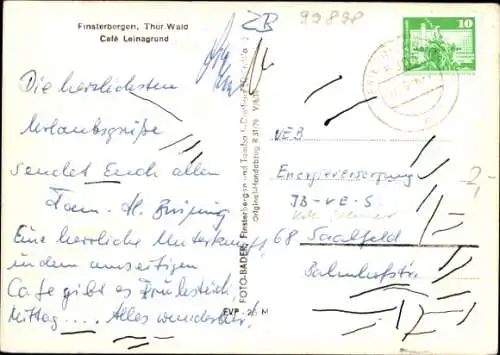 Finsterbergen, Thür. Wald
Café Leinagrund
ZB
99898
10
Die herzlichsten
Urlaubsgrüße
sendet Euch allen
Fam. H.
Eine herrliche Unterkunft,
in dem
Cafe gibt es Frühstück,
Mittag .... Alles wunderbar!
FOTO-BÄDER, Finsterbergen und
Original-Handabzug R 31/79
EVP -.25 M
VEB
Energieversorgung
IB-VE-S
68 Saalfeld
Bahnhofstr.
-2,-